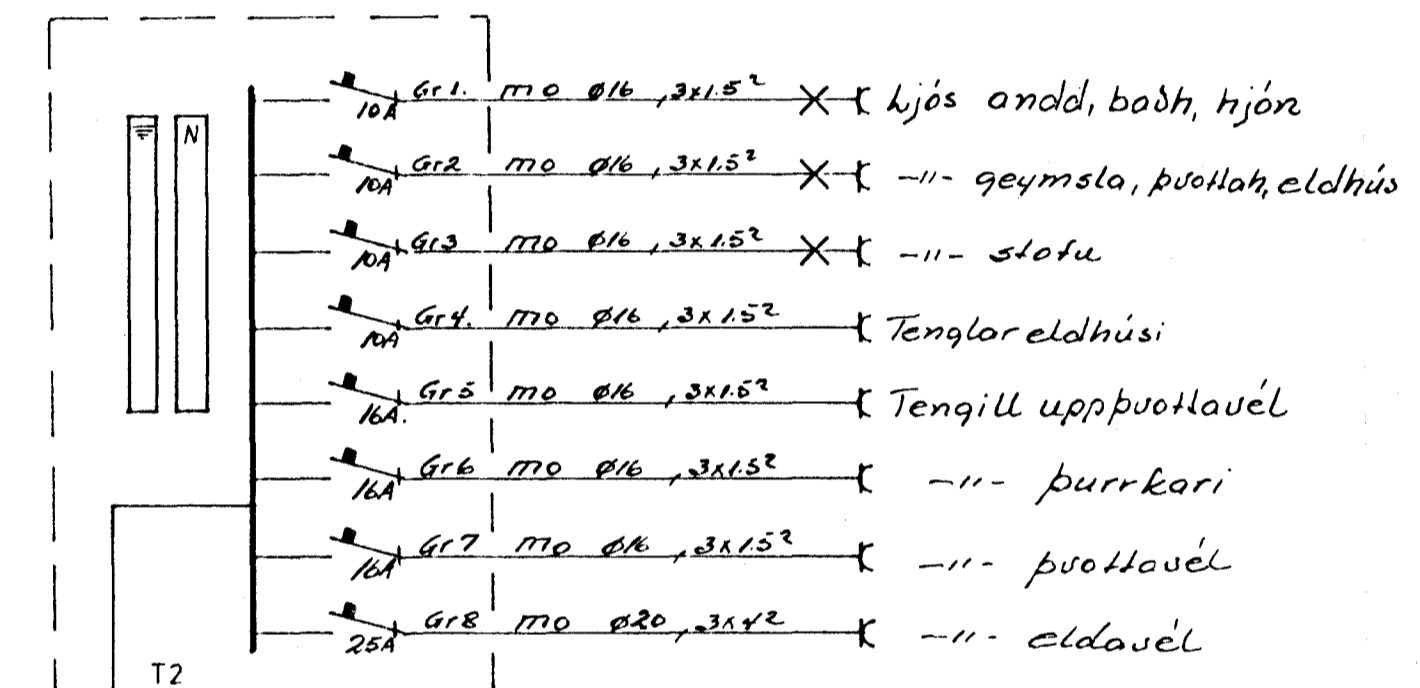 Gr1. mo ø16, 3x1.5² Ljós andd, baðh, hjón
10A
N
Gr2 mo ø16, 3x1.5² -"- geymsla, þvottah, eldhús
10A
Gr3 mo ø16, 3x1.5² -"- stofu
10A
Gr4. mo ø16, 3x1.5² Tenglar eldhúsi
10A
Gr5 mo ø16, 3x1.5² Tengill uppþvottavél
16A.
Gr6 mo ø16, 3x1.5² -"- þurrkari
16A
Gr7 mo ø16, 3x1.5² -"- þvottavél
16A
Gr8 mo ø20, 3x4² -"- eldavél
25A
T2